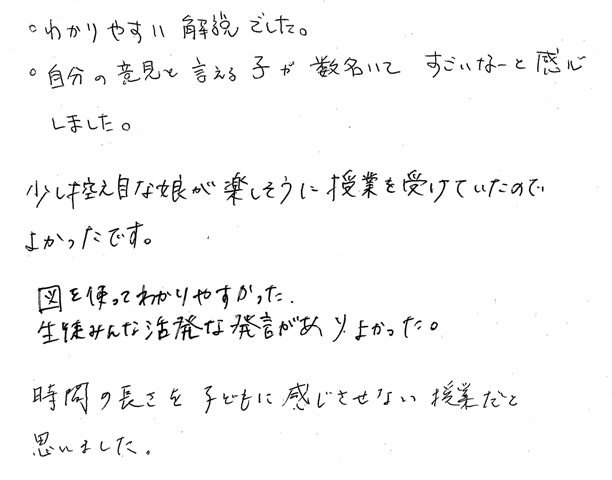 ○わかりやすい解説でした。
○自分の意見を言える子が数名いてすごいなーと感心
しました。
少し控え目な娘が楽しそうに授業を受けていたので
よかったです。
図を使ってわかりやすかった.
生徒みんな活発な発言がありよかった。
時間の長さを子どもに感じさせない授業だと
思いました。